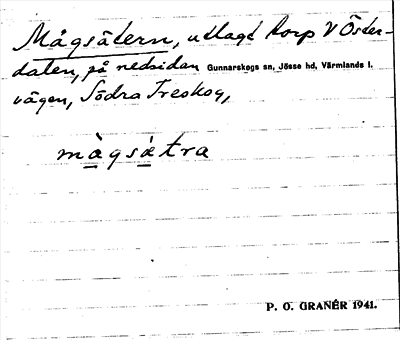 Mågsätern, utlagt torp V Öster-
dalen, på nedsidan Gunnarskogs sn, Jösse hd, Värmlands l.
vägen, Södra Treskog,
mågsætra
P. O. GRANÉR 1941.